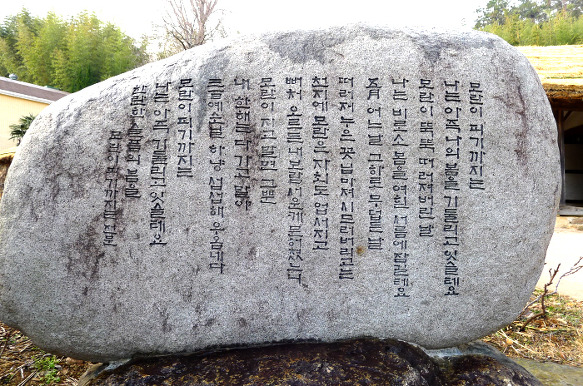 모란이 피기까지는
나는 아즉 나의 봄을 기둘리고 잇슬테요
모란이 뚝뚝 떠러져버린 날
나는 비로소 봄을 여흰 서름에 잠길테요
五月 어느날 그 하로 무덥든 날
떠러져 누은 꽃닙마져 시드러버리고는
천지에 모란은 자최도 업서지고
뻐쳐 오르든 내 보람 서운케 문허졌느니
모란이 지고 말면 그뿐
내 한해는 다 가고 말아
三百예순날 하냥 섭섭해 우옵내다
모란이 피기까지는
나는 아즉 기둘리고 잇슬테요
찬란한 슬픔의 봄을
모란이 피기까지는 전문